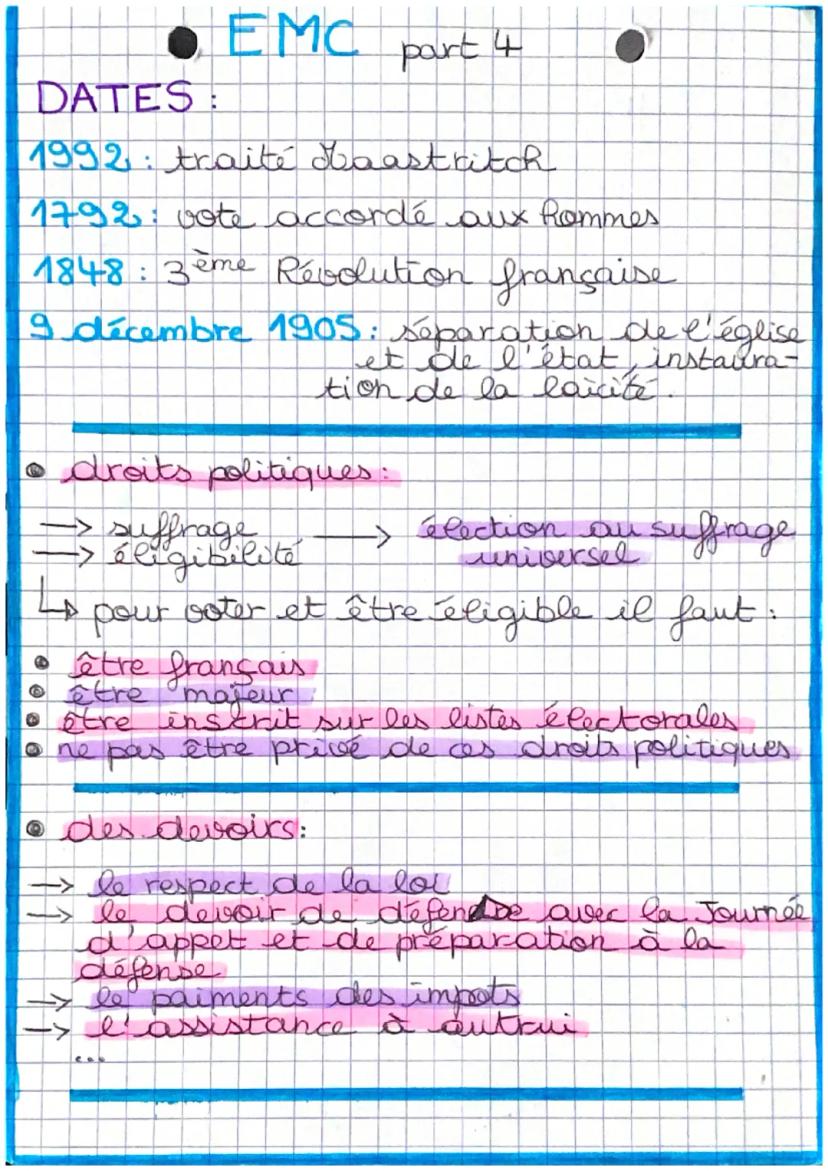 EMC part 4
DATES :
1992 : traité Maastritch
1792 : vote accordé aux hommes
1848 : 3ème Révolution française
9 décembre 1905 : séparation de l'église
et de l'état, instaura-
tion de la laïcité.
• droits politiques :
→ suffrage → élection au suffrage
→ éligibilité universel
↳ pour voter et être éligible il faut :
• être français
• être majeur
• être inscrit sur les listes électorales
• ne pas être privé de ces droits politiques
• des devoirs :
→ le respect de la loi
→ le devoir de défense avec la Journée
d'appel et de préparation à la
défense
→ le paiments des impots
→ l'assistance à autrui
...